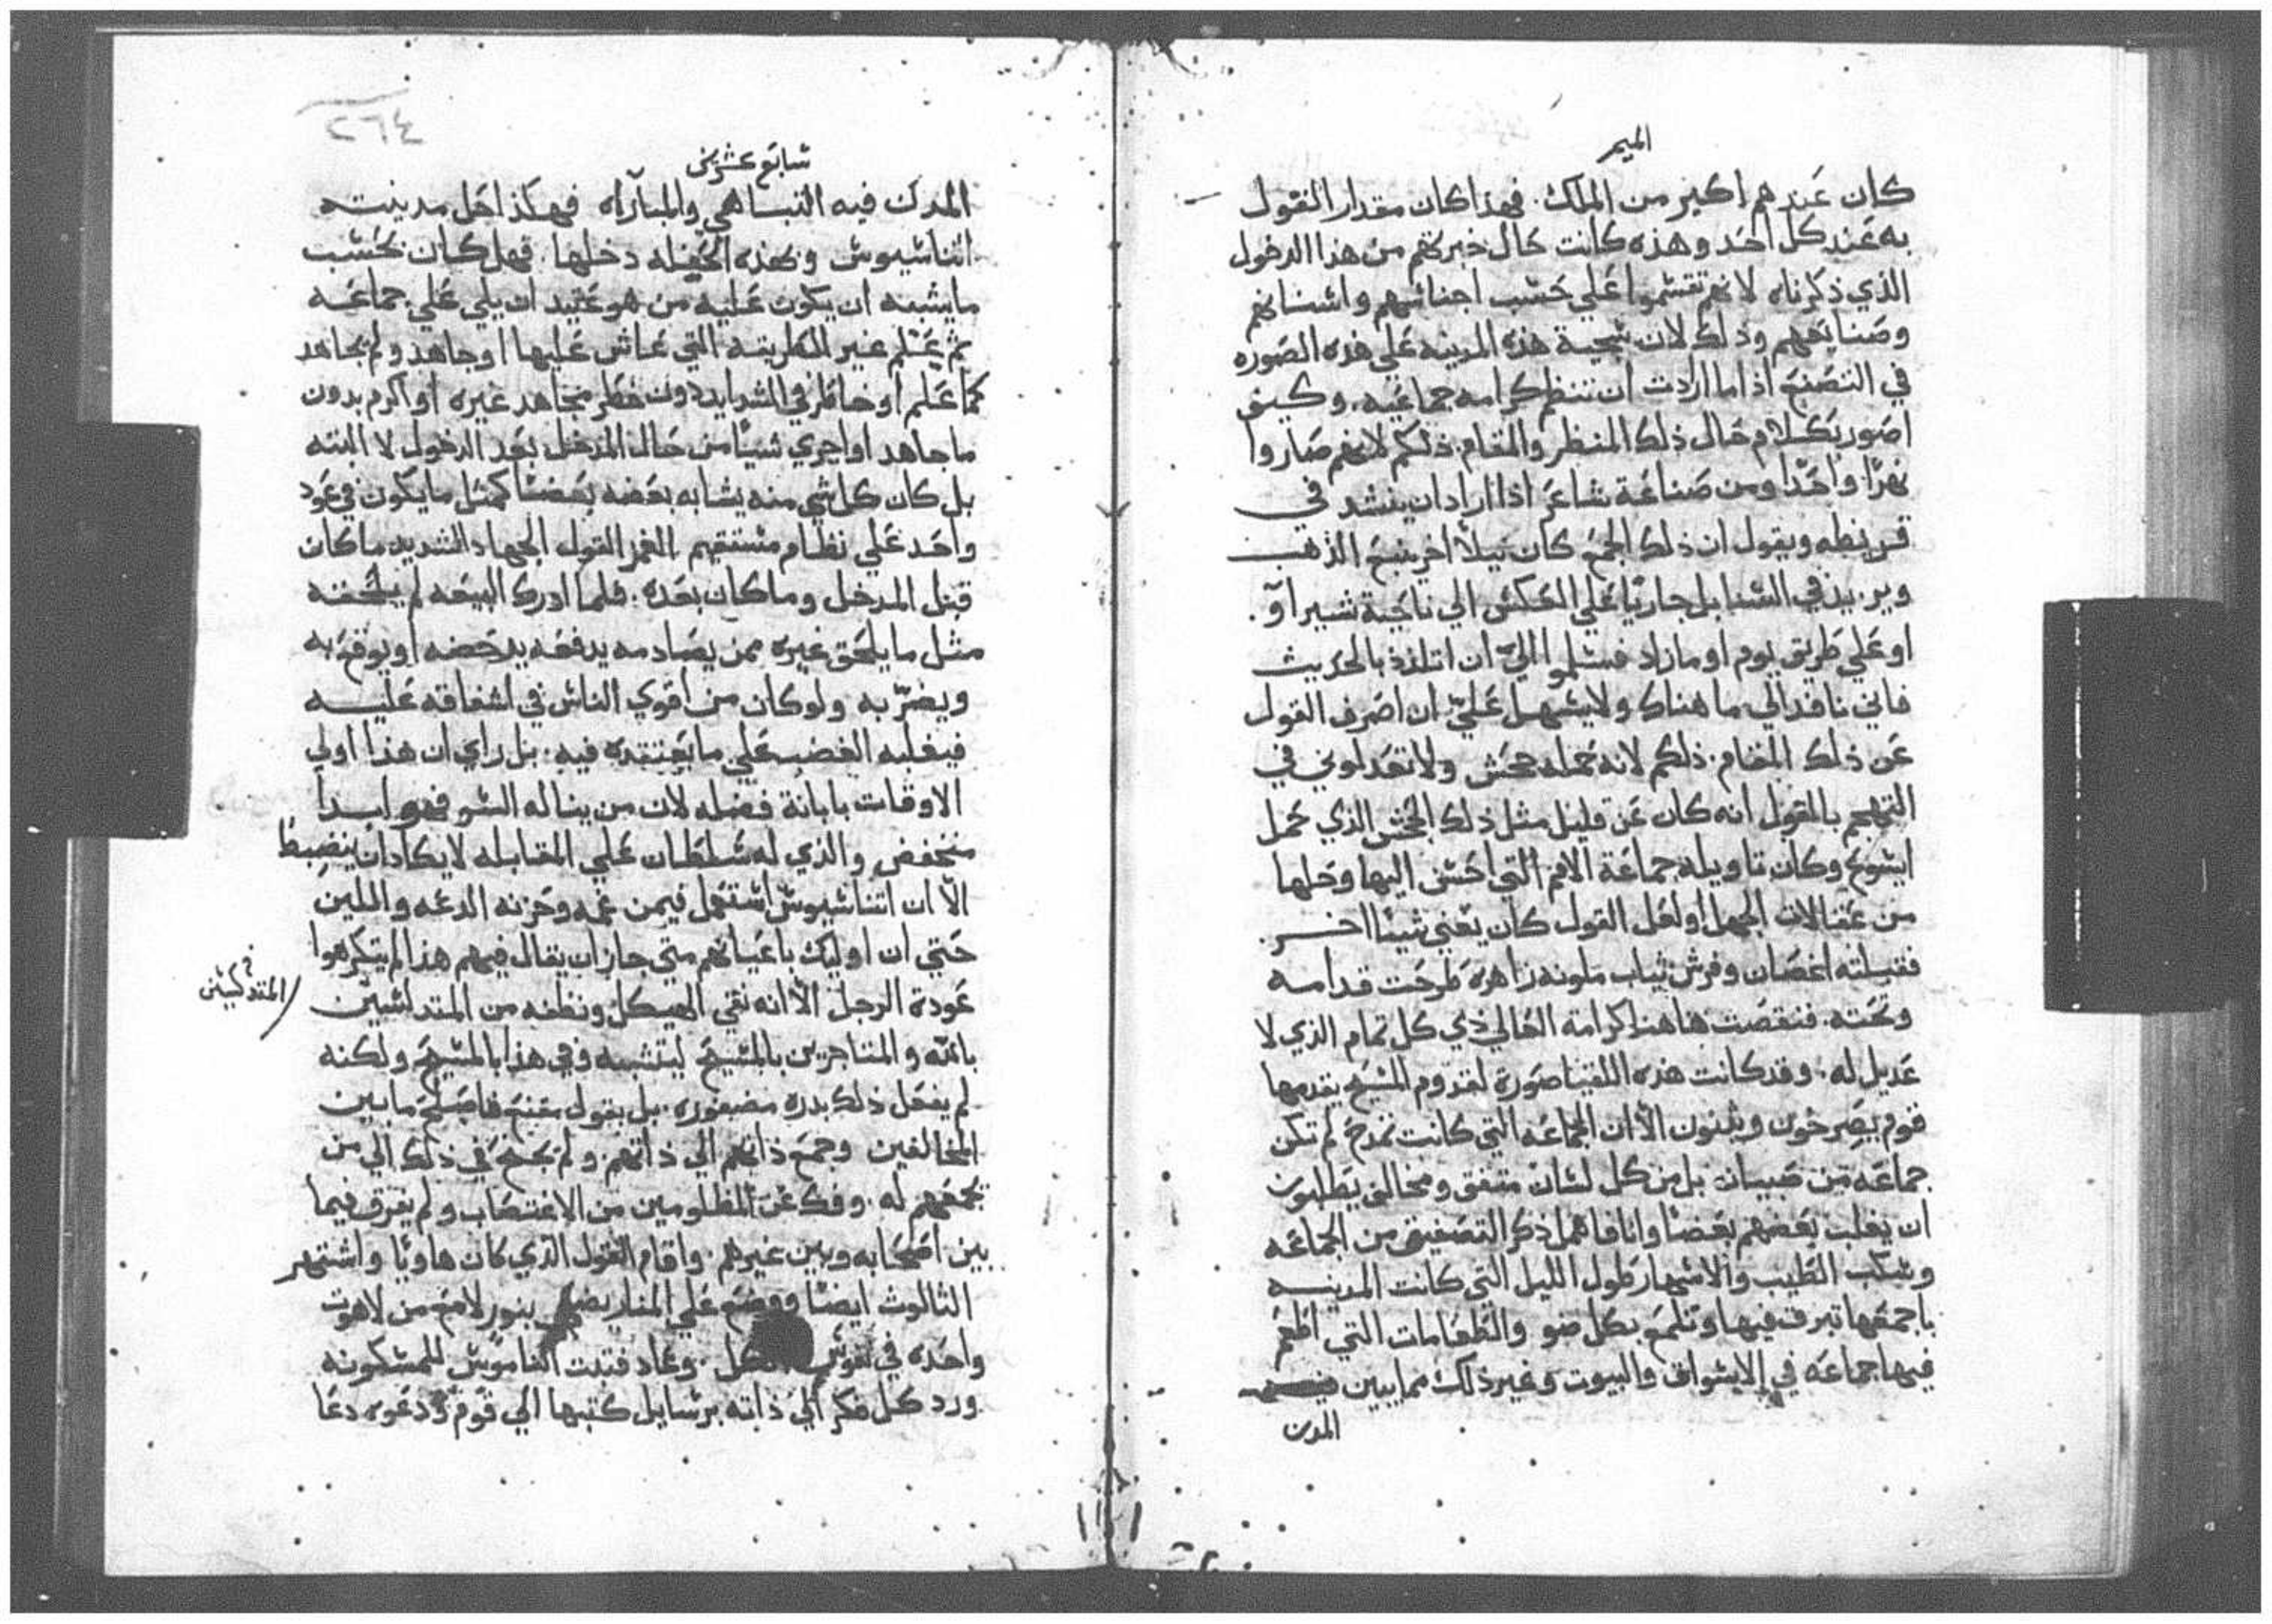 الميمر
كان عندهم اكبر من الملك. فهذا كان مقدار القول
به عند كل احد وهذه كانت حال خبرتهم من هذا الدخول
الذي ذكرناه لانهم تقسموا علي حسب اجناسهم واسنانهم
وصنايعهم وذلك لان سجية هذه المدينه علي هذه الصوره
في التصنع اذا ما ارادت ان تنظم كرامه جماعيه. وكيف
اصور بكلام حال ذلك المنظر والمقام. ذلكم لانهم صاروا
نهرًا واحدًا ومن صناعة شاعر اذا اراد ان ينشد في
قرينطه ويقول ان ذلك الجمع كان نيلاً اخر ينبع الذهب
ويزيد في السنابل جاريًا علي العكس الي ناحية شيراوّ.
او علي طريق يوم او ما زاد فسلموا اليّ ان اتلذذ بالحديث
فاني نافد الي ما هناك ولا يسهل عليّ ان اصرف القول
عن ذلك المقام. ذلكم لانه حمله جحش ولا تعدلوني في
التهجم بالقول انه كان عن قليل مثل ذلك الجحش الذي حمل
ايسوع وكان تاويله جماعة الامم التي احسن اليها وحلها
من عقالات الجهل او لعل القول كان يعني شيئا اخر.
فقبلته اغصان وفرش ثياب ملونه زاهره طرحت قدامه
وتحته. فنقصت هاهنا كرامة العالي ذي كل تمام الذي لا
عديل له. وقد كانت هذه اللقيا صورة لقدوم المسيح يقدمها
قوم يصرخون ويثنون الّا ان الجماعه التي كانت تمدح لم تكن
جماعه من صبيان بل من كل لسان متفق ومخالف يطلبون
ان يغلب بعضهم بعضًا وانا فاهمل ذكر التصفيق من الجماعه
وسكب الطيب والاسهار طول الليل التي كانت المدينه
باجمعها تبرق فيها وتلمع بكل ضو والطعامات التي اطعم
فيها جماعه في الاسواق والبيوت وغير ذلك مما يبين
المدن
٢٦٤
سابع عشرين
المدن فيه التباهي والمباراه فهكذا حل مدينته
اتناسيوس وبهذه الحفله دخلها. فهل كان بحسب
ما يشبه ان يكون عليه من هو عتيد ان يلي علي جماعه
ثم علم غير الطريقه التي عاش عليها او جاهد ولم يجاهد
كما علم او خاطر في الشدايد دون خطر مجاهد غيره او اكرم بدون
ما جاهد او اجري شيًا من حال المدخل بعد الدخول لا البته
بل كان كل شي منه يشابه بعضه بعضًا كمثل ما يكون في عود
واحد علي نظام مستقيم الغمز القول الجهاد الشديد ما كان
قبل المدخل وما كان بعده. فلما ادرك البيعه لم يلحقه
مثل ما يلحق غيره ممن يصادمه يدفعه يدحضه او يوقع به
ويضرّ به ولو كان من اقوي الناس في اشفاقه عليه
فيغلبه الغضب علي ما يعتقده فيه. بل راي ان هذا اولي
الاوقات بابانة فضله لان من يناله السو فهو ابدًا
منخفض والذي له سلطان علي المقابله لا يكاد ان ينضبط
الّا ان اتناسيوس استعمل فيمن غمه وحزنه الدعه واللين
حتي ان اوليك باعيانهم متي جاز ان يقال فيهم هذا لم يتكرهوا
عودة الرجل الّا انه نقي الهيكل ونظفه من المتدلسين
بالله والمتاجرين بالمسيح ليتشبه وفي هذا بالمسيح ولكنه
لم يفعل ذلك بدره مضفوره. بل بقول مقنع فاصلح ما بين
المخالفين وجمع ذاتهم الي ذاتهم. ولم يجنح في ذلك الي من
يجمعهم له. وفك عن المظلومين من الاغتصاب ولم يفرق فيما
بين اصحابه وبين غيرهم. واقام القول الذي كان هاويًا واشتهر
الثالوث ايضًا ووضع علي المنار يضي بنور لامع من لاهوت
واحده في نفوس الكل. وعاد فتبت الناموس للمسكونه
ورد كل فكر الي ذاته برسايل كتبها الي قوم ودعوه دعا